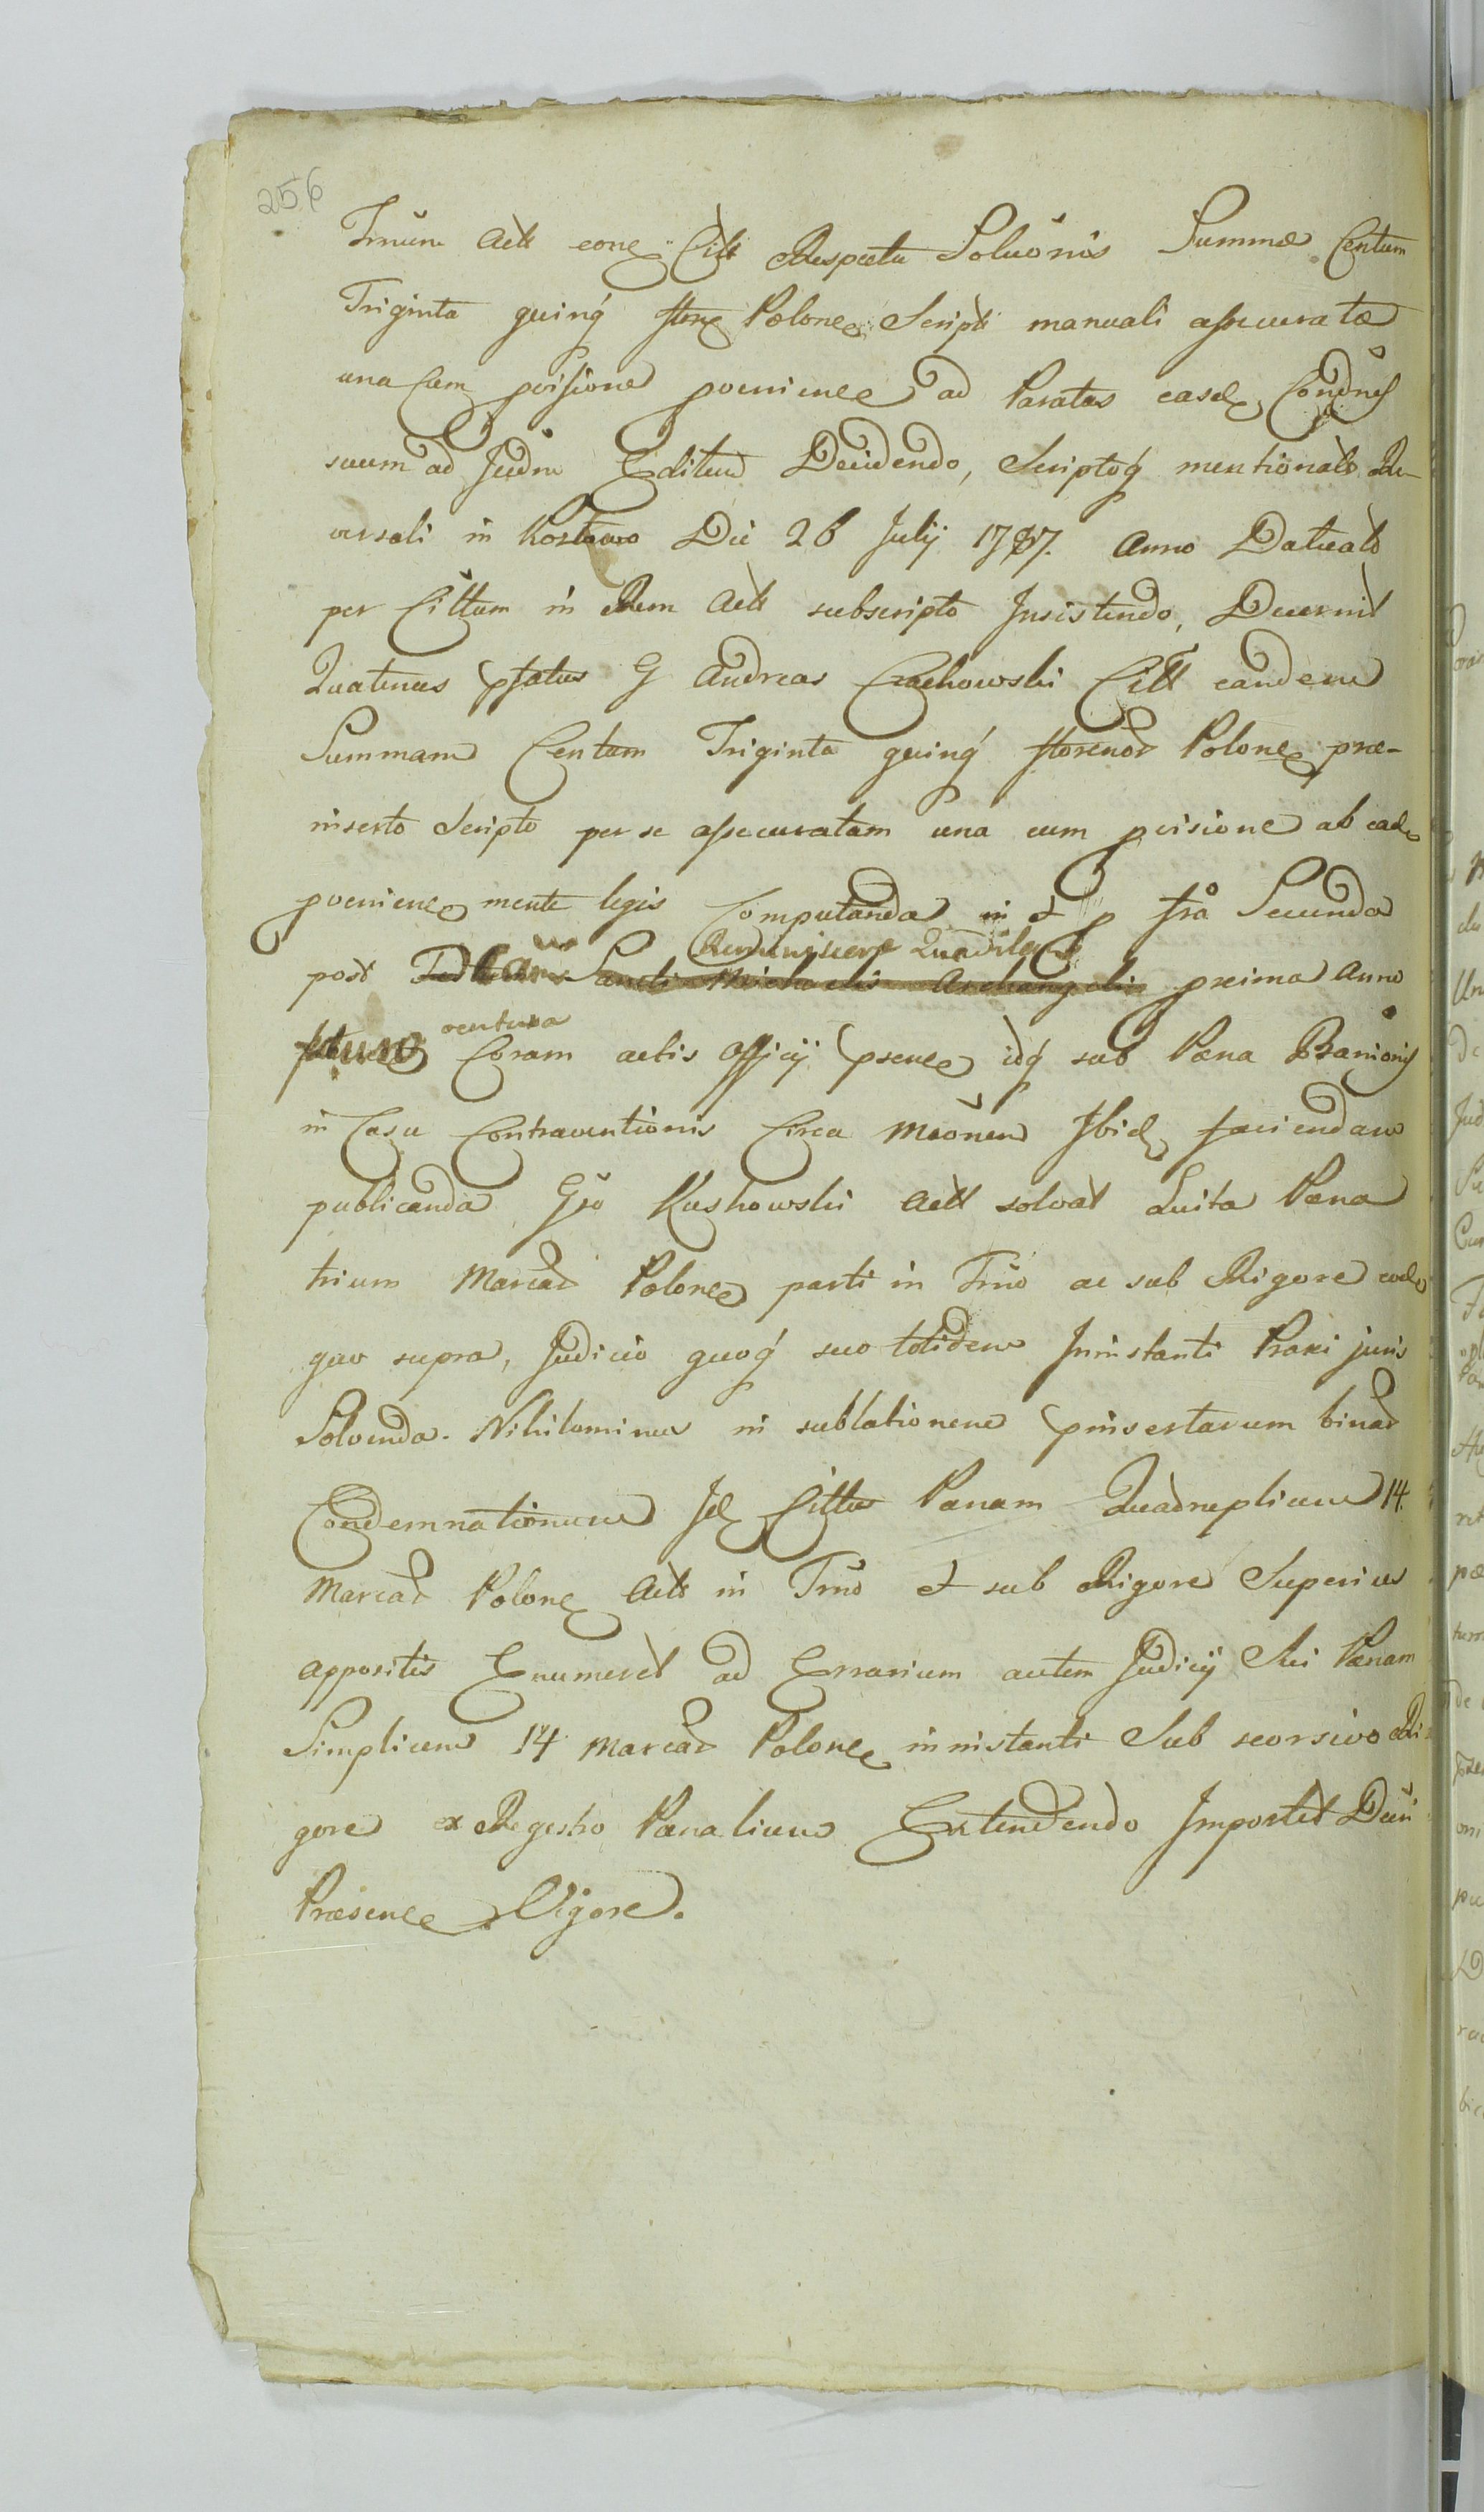 256
Trnum Actt eonc Citt Respectu Soluõnis Summæ Centum
Triginta quinq́ flnrc Polonc Scripti manuali assecuratæ
una cum pvisione pvenience ad Paratas easd Condnes
suum ad Judm Editum Decidendo, Scriptoq́ mentionato Re-
versali in Kostowo Die 26 Julij 1787. Anno Datuato
per Cittum in Rem Actt subscripto Insistendo, Decernit
Quatenus pfatus G Andreas Czachowski Citt eandem
Summam Centum Triginta quinq́ florenor Polonc præ-
inserto Scripto per se assecuratam una cum pvisione ab ead
pvenienc mente legis Computanda in et p fra Secunda
Reminiscere Quadrles
post Sancti Michaelis Archangeli proxima Anno
ventura
futuro Coram actis Officij psenc idq́ sub Pæna Banionis
in Casu Contraventionis Circa Mõnem Ibid faciendam
publicanda Gso Kuskowski Actt solvat Luita Pæna
trium Marcar Polonc parti in Trno ac sub Rigore eod
quo supra, Judicio quoq́ suo totidem Ininstanti Praxi juris
Solvenda. Nihilominus in sublationem pinsertarum binar
Condemnationum Id Cittus Pænam Quadruplicem 14.
Marcar Polonc Actt in Trno et sub Rigore Superius
appositis Enumeret ad Errarium autem Judicij Sui Pænam
Simplicem 14 Marcar Polonc ininstanti Sub seorsivo Ri-
gore ex Regestro Pænalium Extendendo Importet Dcti
Præsenc Vigore.